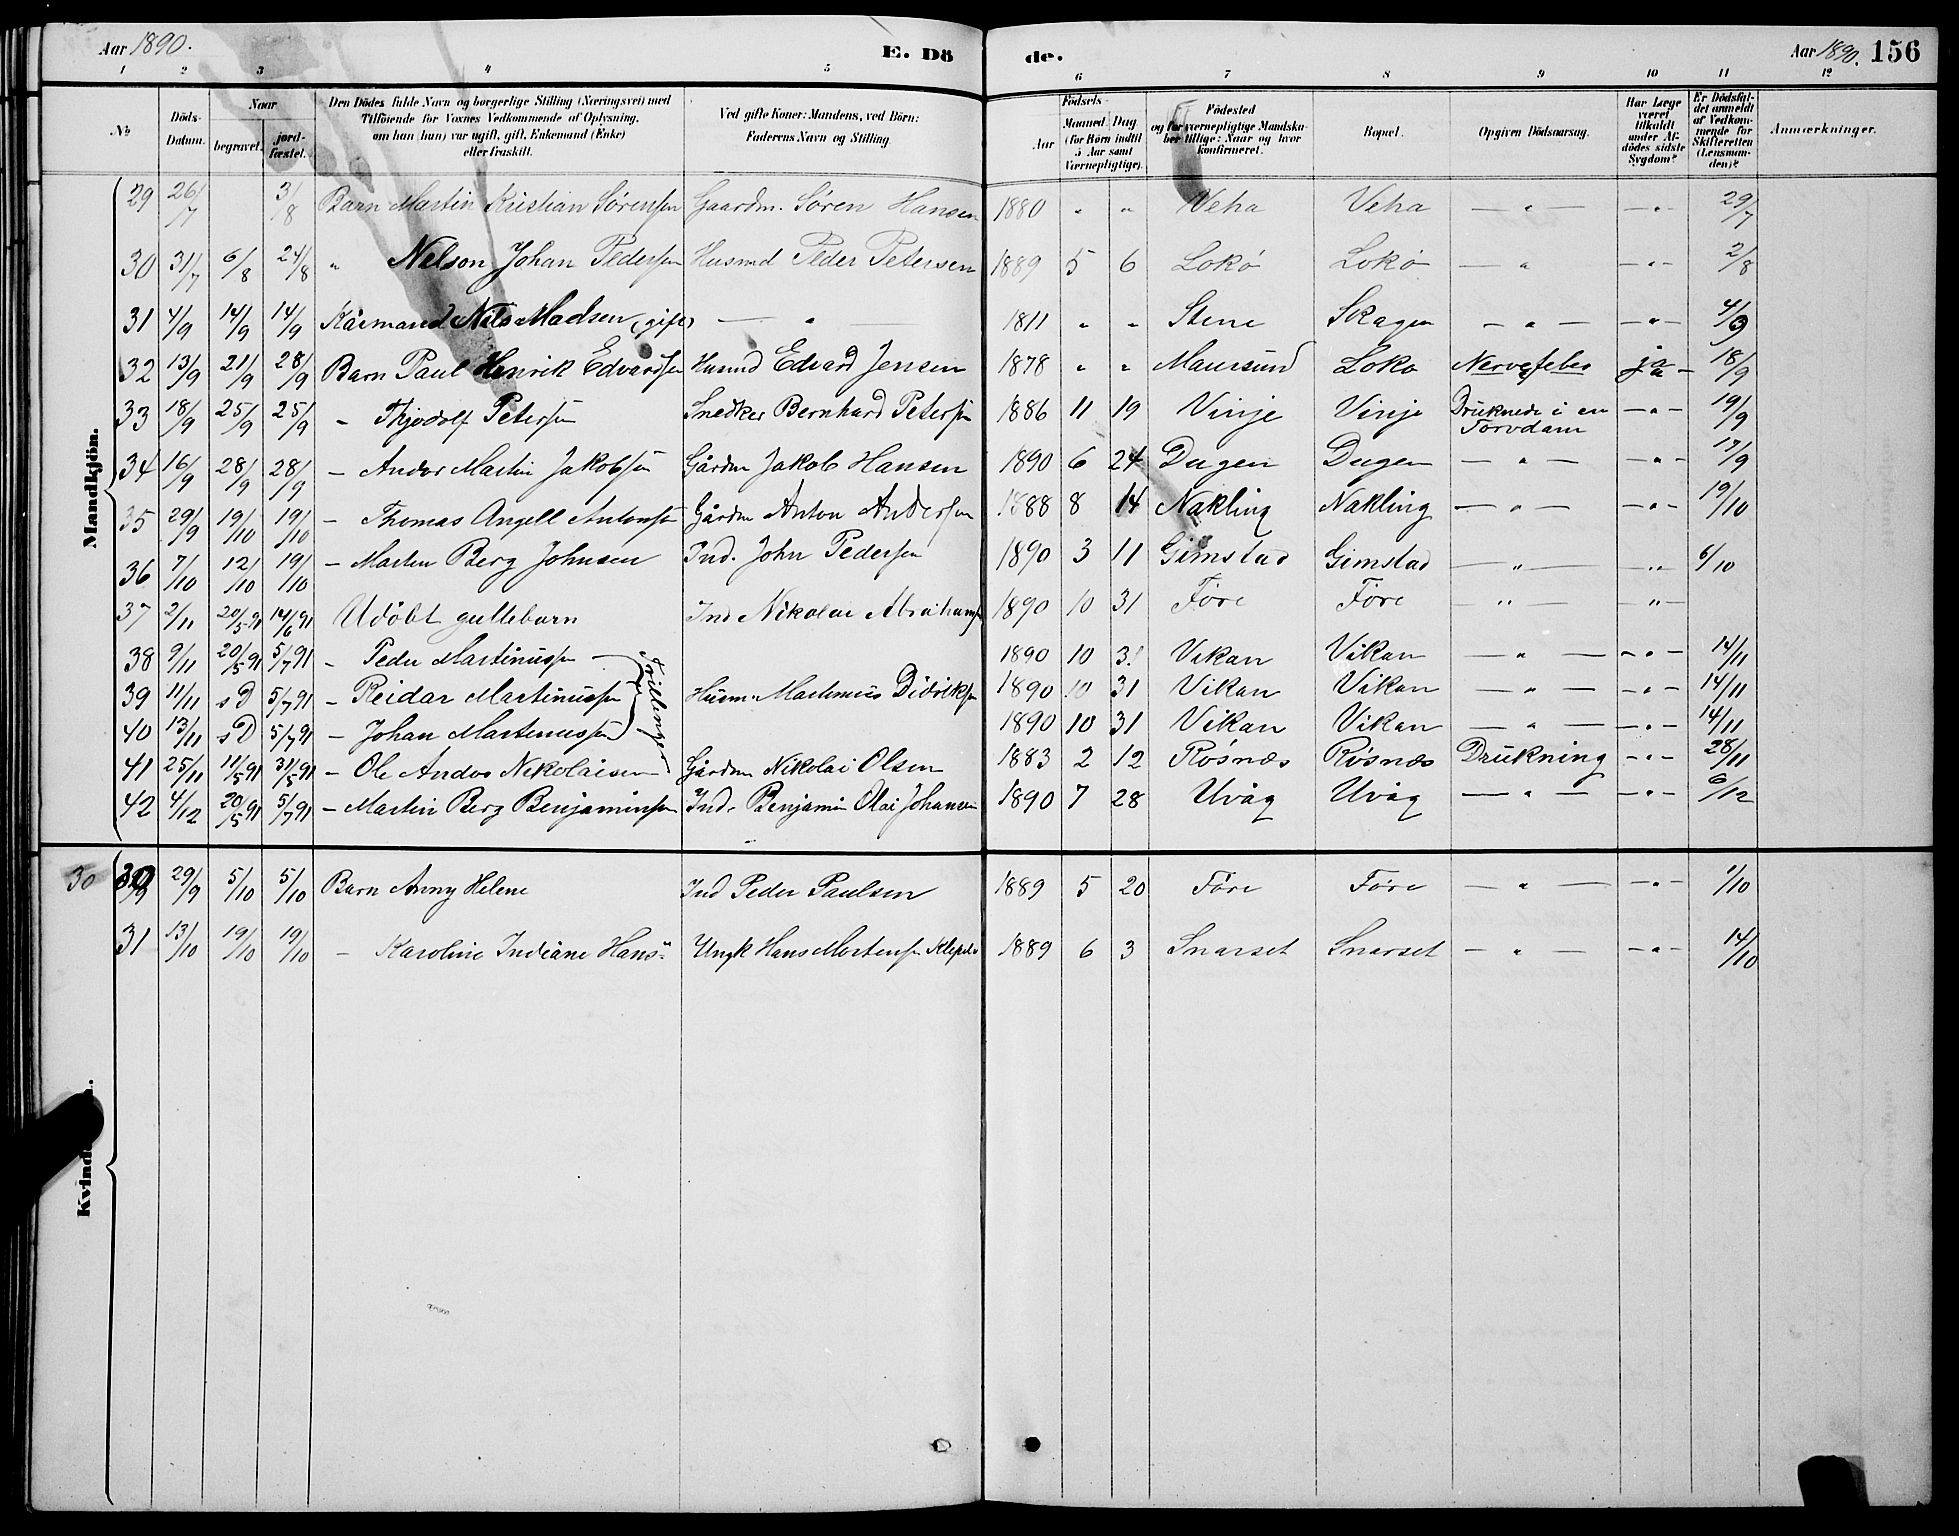 Aar 1890. E. Dö de. Aar 1890. 156
1 2 3 4 5 6 7 8 9 10 11 12
No Döds-Datum. Naar begravet. jord-fæstet. Den Dödes fulde Navn og borgerlige Stilling (Næringsvei) med Tilföiende for Voxnes Vedkommende af Oplysning, om han (hun) var ugift, gift, Enkemand (Enke) eller fraskilt. Ved gifte Koner: Mandens, ved Börn: Faderens Navn og Stilling. Födsels- Aar Maaned Dag (for Börn indtil 5 Aar samt Værnepligtige). Födested og for værnepligtige Mandskaber tillige: Naar og hvor konfirmeret. Bopæl. Opgiven Dödsaarsag. Har Læge været tilkaldt under Afdödes sidste Sygdom? Er Dödsfaldet anmeldt af Vedkommende for Skifteretten (Lensmanden)? Anmærkninger.
Mandkjön.
29 26/7 3/8 Barn Martin Kristian Sørensen Gaardm. Søren Hansen 1880 " " Veha Veha — " — — " — 29/7
30 31/7 6/8 24/8 " Nelson Johan Pedersen Husmd Peder Petersen 1889 5 6 Lokø Lokø — " — — " — 2/8
31 4/9 14/9 14/9 Kårmand Nils Madsen (gift) — " — 1811 " " Stene Skagen — " — — " — 4/9
32 13/9 21/9 28/9 Barn Paul Henrik Edvardsen Husmd Edvard Jensen 1878 " " Maursund Loko Nervefeber ja 18/9
33 18/9 25/9 25/9 — Thjodolf Petersen Snedker Bernhard Petersen 1886 11 19 Vinje Vinje Druknede i en Torvdam — " — 19/9
34 16/9 28/9 28/9 — Andor Martin Jakobsen Gårdm Jakob Hansen 1890 6 24 Dugen Dugen — " — — " — 17/9
35 29/9 19/10 19/10 — Thomas Angell Antonsen Gårdm Anton Andersen 1888 8 14 Nakling Nakling — " — — " — 19/10
36 7/10 12/10 19/10 — Martin Berg Johnsen Ind. John Pedersen 1890 3 11 Gimstad Gimstad — " — — " — 6/10
37 2/11 20/5 91 14/6 91 Udöbt guttebarn Ind Nikolai Abrahams 1890 10 31 Före Före — " — — " —
38 9/11 20/5 91 5/7 91 — Peder Martinussen 1890 10 31 Vikan Vikan — " — — " — 14/11
39 11/11 s D 5/7 91 — Reidar Martinussen Trillinger Husm. Martinus Didriksen 1890 10 31 Vikan Vikan — " — — " — 14/11
40 13/11 s D 5/7 91 — Johan Martinussen 1890 10 31 Vikan Vikan — " — — " — 14/11
41 25/11 11/5 91 31/5 91 — Ole Andor Nikolaisen Gårdm Nikolai Olsen 1883 2 12 Røsnæs Røsnæs Drukning — " — 28/11
42 4/12 20/5 91 5/7 91 — Martin Berg Benjaminsen Ind. Benjamin Olai Johansen 1890 7 28 Uvåg Uvåg — " — — " — 6/12
Kvind
30 30 29/9 5/10 5/10 Barn Anny Helene Ind Peder Paulsen 1889 5 20 Före Före — " — — " — 1/10
31 13/10 19/10 19/10 — Karoline Indiane Hans" Ungk Hans Mortensen 1889 6 3 Snarset Snarset — " — — " — 14/10